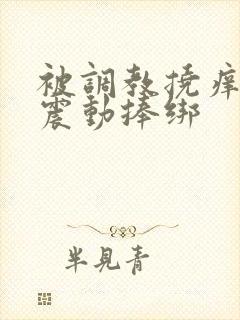 被調教撓癢
震動捧綁
半見青